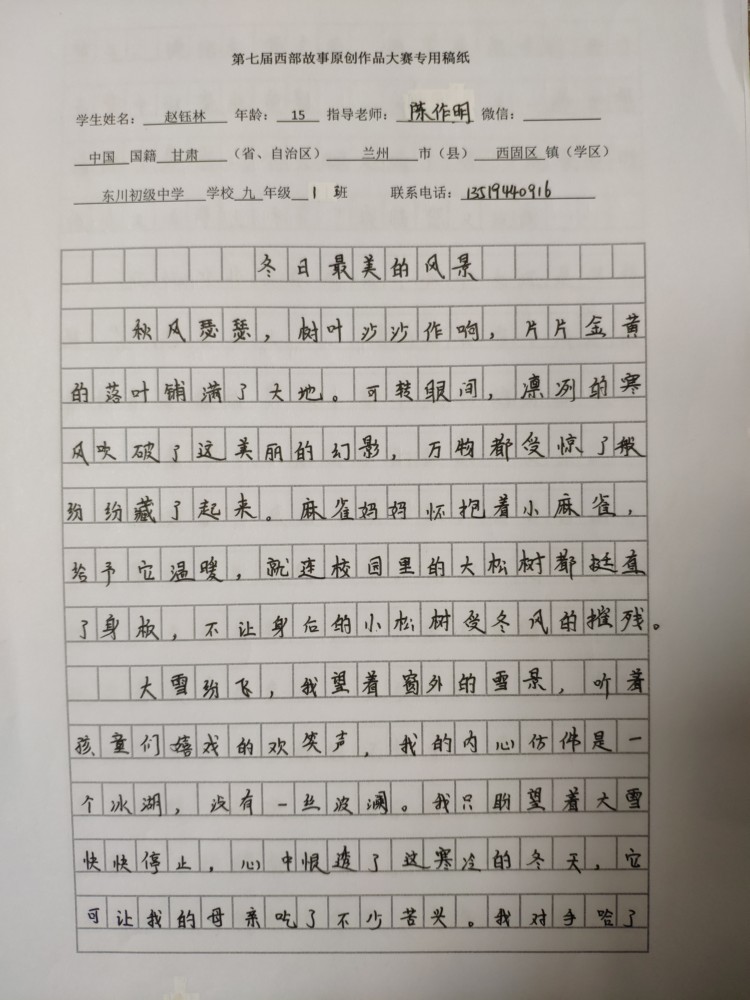 第七届西部故事原创作品大赛专用稿纸
学生姓名： 赵钰林 年龄： 15 指导老师： 陈作明 微信：
中国 国籍 甘肃 （省、自治区） 兰州 市（县） 西固区 镇（学区）
东川初级中学 学校 九 年级 1 班 联系电话： 13519440916
冬日最美的风景
秋风瑟瑟，树叶沙沙作响，片片金黄
的落叶铺满了大地。可转眼间，凛冽的寒
风吹破了这美丽的幻影，万物都受惊了般
纷纷藏了起来。麻雀妈妈怀抱着小麻雀，
给予它温暖，就连校园里的大松树都挺直
了身板，不让身后的小松树受冬风的摧残。
大雪纷飞，我望着窗外的雪景，听着
孩童们嬉戏的欢笑声，我的内心仿佛是一
个冰湖，没有一丝波澜。我只盼望着大雪
快快停止，心中恨透了这寒冷的冬天，它
可让我的母亲吃了不少苦头。我对手哈了